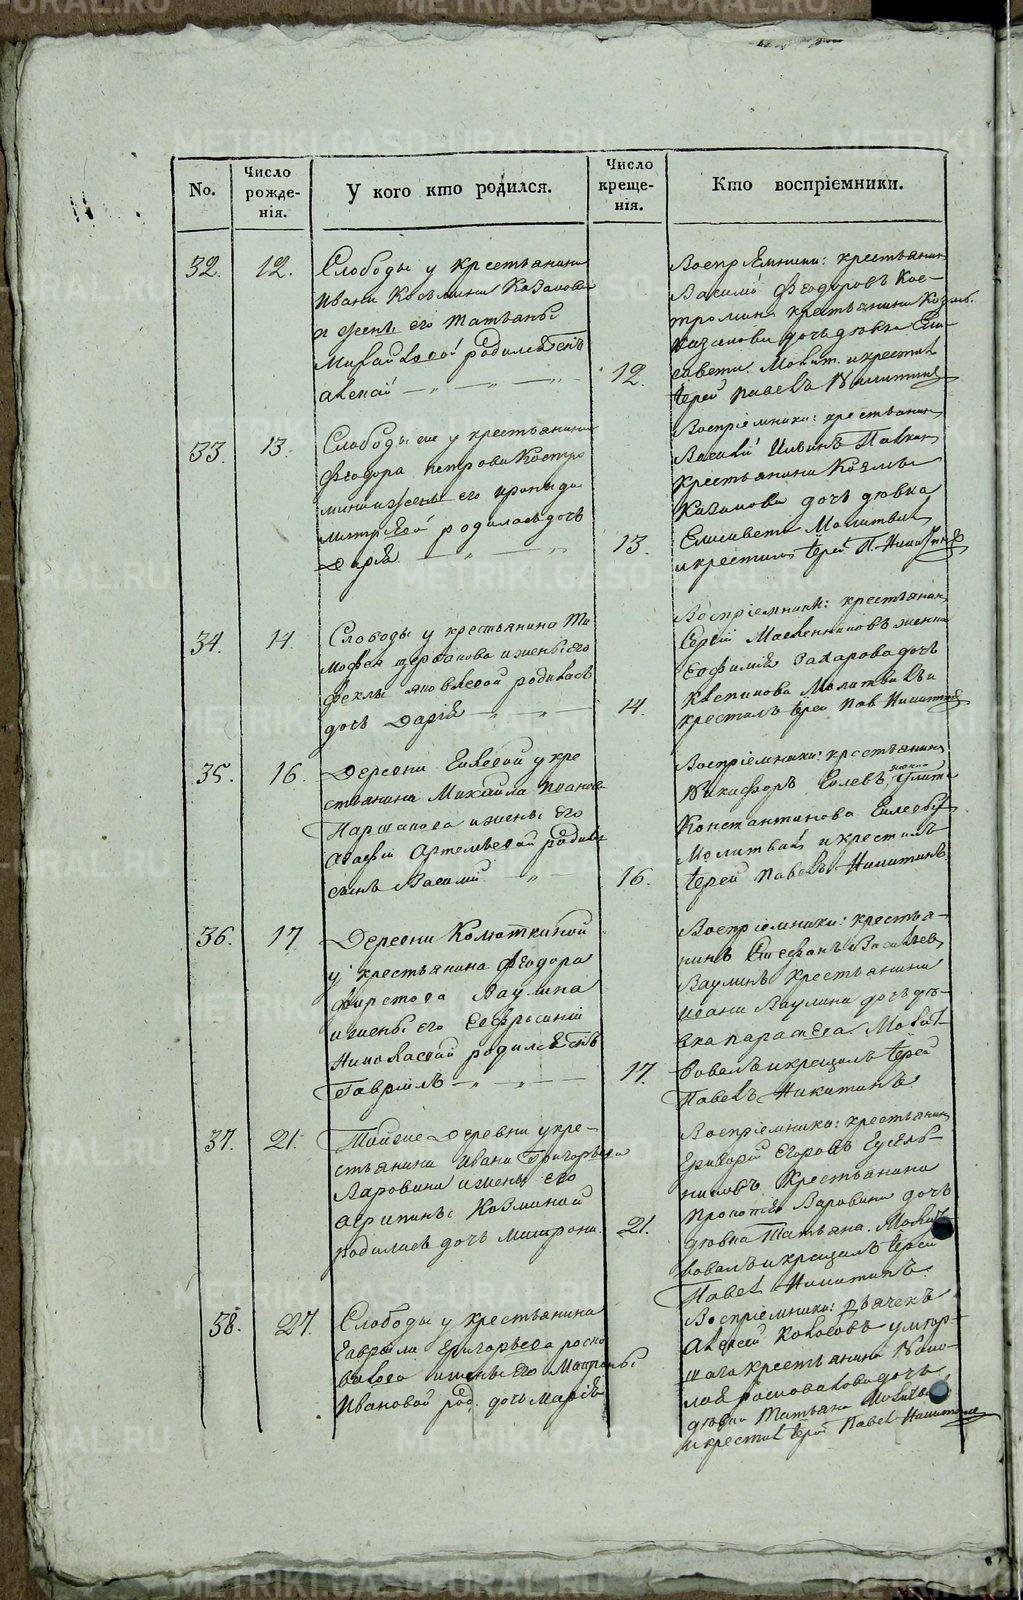 No.
Число
рожде-
нія.
У кого кто родился.
Число
креще-
нія.
Кто воспріемники.
32.
12.
Слободы у крестьянина
Ивана Козьмина Казакова
и жены его Татьяны
Михайловой родился сынъ
Алексѣй
12.
Воспріемники: крестьянин
Василій Феодоровъ Кос-
тромин крестьянина Козьм.
Казакова дочь дѣвка Ели-
савета. Молит. и крестил
Іерей Павелъ Никитинъ
33.
13.
Слободы сие у крестьянина
Феодора Петрова Костро
мина и жены его
Дмитріевой родилась дочь
Дарія
13.
Воспріемники: крестьянин
Василій Ильинъ
крестьянина Козмы
Казакова дочь дѣвка
Елисавета Молитвил
и крестилъ Іерей П. Никитинъ
34.
14
Слободы у крестьянина Ти
мофея Щербакова и жены его
Феклы Яковлевой родилась
дочь Дарія
14.
Воспріемники: крестьянин
Сергій Масленниковъ жена
Евфимія Захарова дочь
Молитвил и
крестилъ Іерей Пав Никитинъ
35.
16.
Деревни Еклевой у кре
стьянина Михайла Иванова
Паршакова и жены его
Агафіи Артемьевой родился
сынъ Василій
16.
Воспріемники: крестьянин
Никифоръ Еклевъ жена Улита
Константинова Еклевыхъ
Молитвил и крестилъ
Іерей Павелъ Никитинъ
36.
17
Деревни Колюткиной
у крестьянина Феодора
Фирстова Ваулина
и жены его Евфросиніи
Николаевой родился сынъ
Гавріилъ
17.
Воспріемники: крестья-
нинъ Стефанъ Васильев
Ваулинъ крестьянина
Ивана Ваулина дочь дѣ-
вка Параскева. Молит-
вовалъ и крещилъ Іерей
Павелъ Никитинъ.
37.
21.
Той же деревни у кре-
стьянина Ивана Григорьева
Ларовина и жены его
Агрипины Козминой
родилась дочь Матрона.
21.
Воспріемники: крестьянин
Григорій Егоровъ Гусель-
никовъ крестьянина
Прокопія Ларовина дочь
дѣвка Татьяна. Молит
вовалъ и крещилъ Іерей
Павел Никитинъ.
38.
27.
Слободы у крестьянина
Гавріила Григорьева роско
валова и жены его Матроны
Ивановой род. дочь Марія
Воспріемники: Дьячекъ
Алексей Колосовъ умер-
шаго крестьянина Нико-
лая росковалова дочь
дѣвка Татьяна Молитвил
и крестил Іерей Павел Никитинъ
METRIKI.GASO-URAL.RU